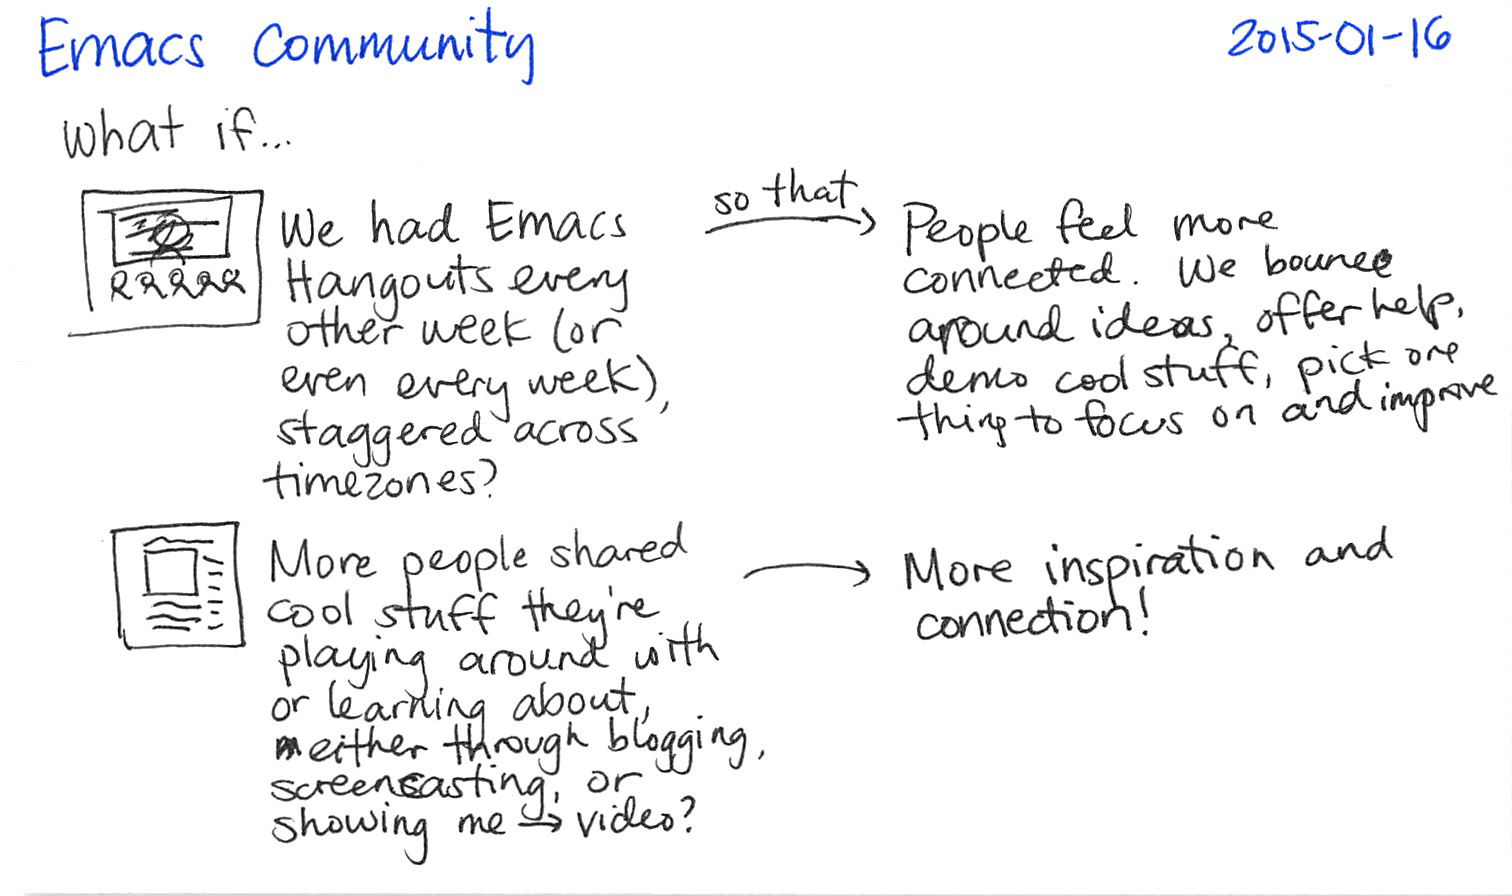 Emacs Community
2015-01-16
What if...
We had Emacs
Hangouts every
other week (or
even every week),
staggered across
timezones?
so that
People feel more
connected. We bounce
around ideas, offer help,
demo cool stuff, pick one
thing to focus on and improve
More people shared
cool stuff they're
playing around with
or learning about,
either through blogging,
screencasting, or
showing me → video?
More inspiration and
connection!